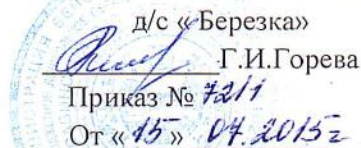 д/с « Березка»
Г.И.Горева
Приказ № 72/1
От « 15 » 04.2015г